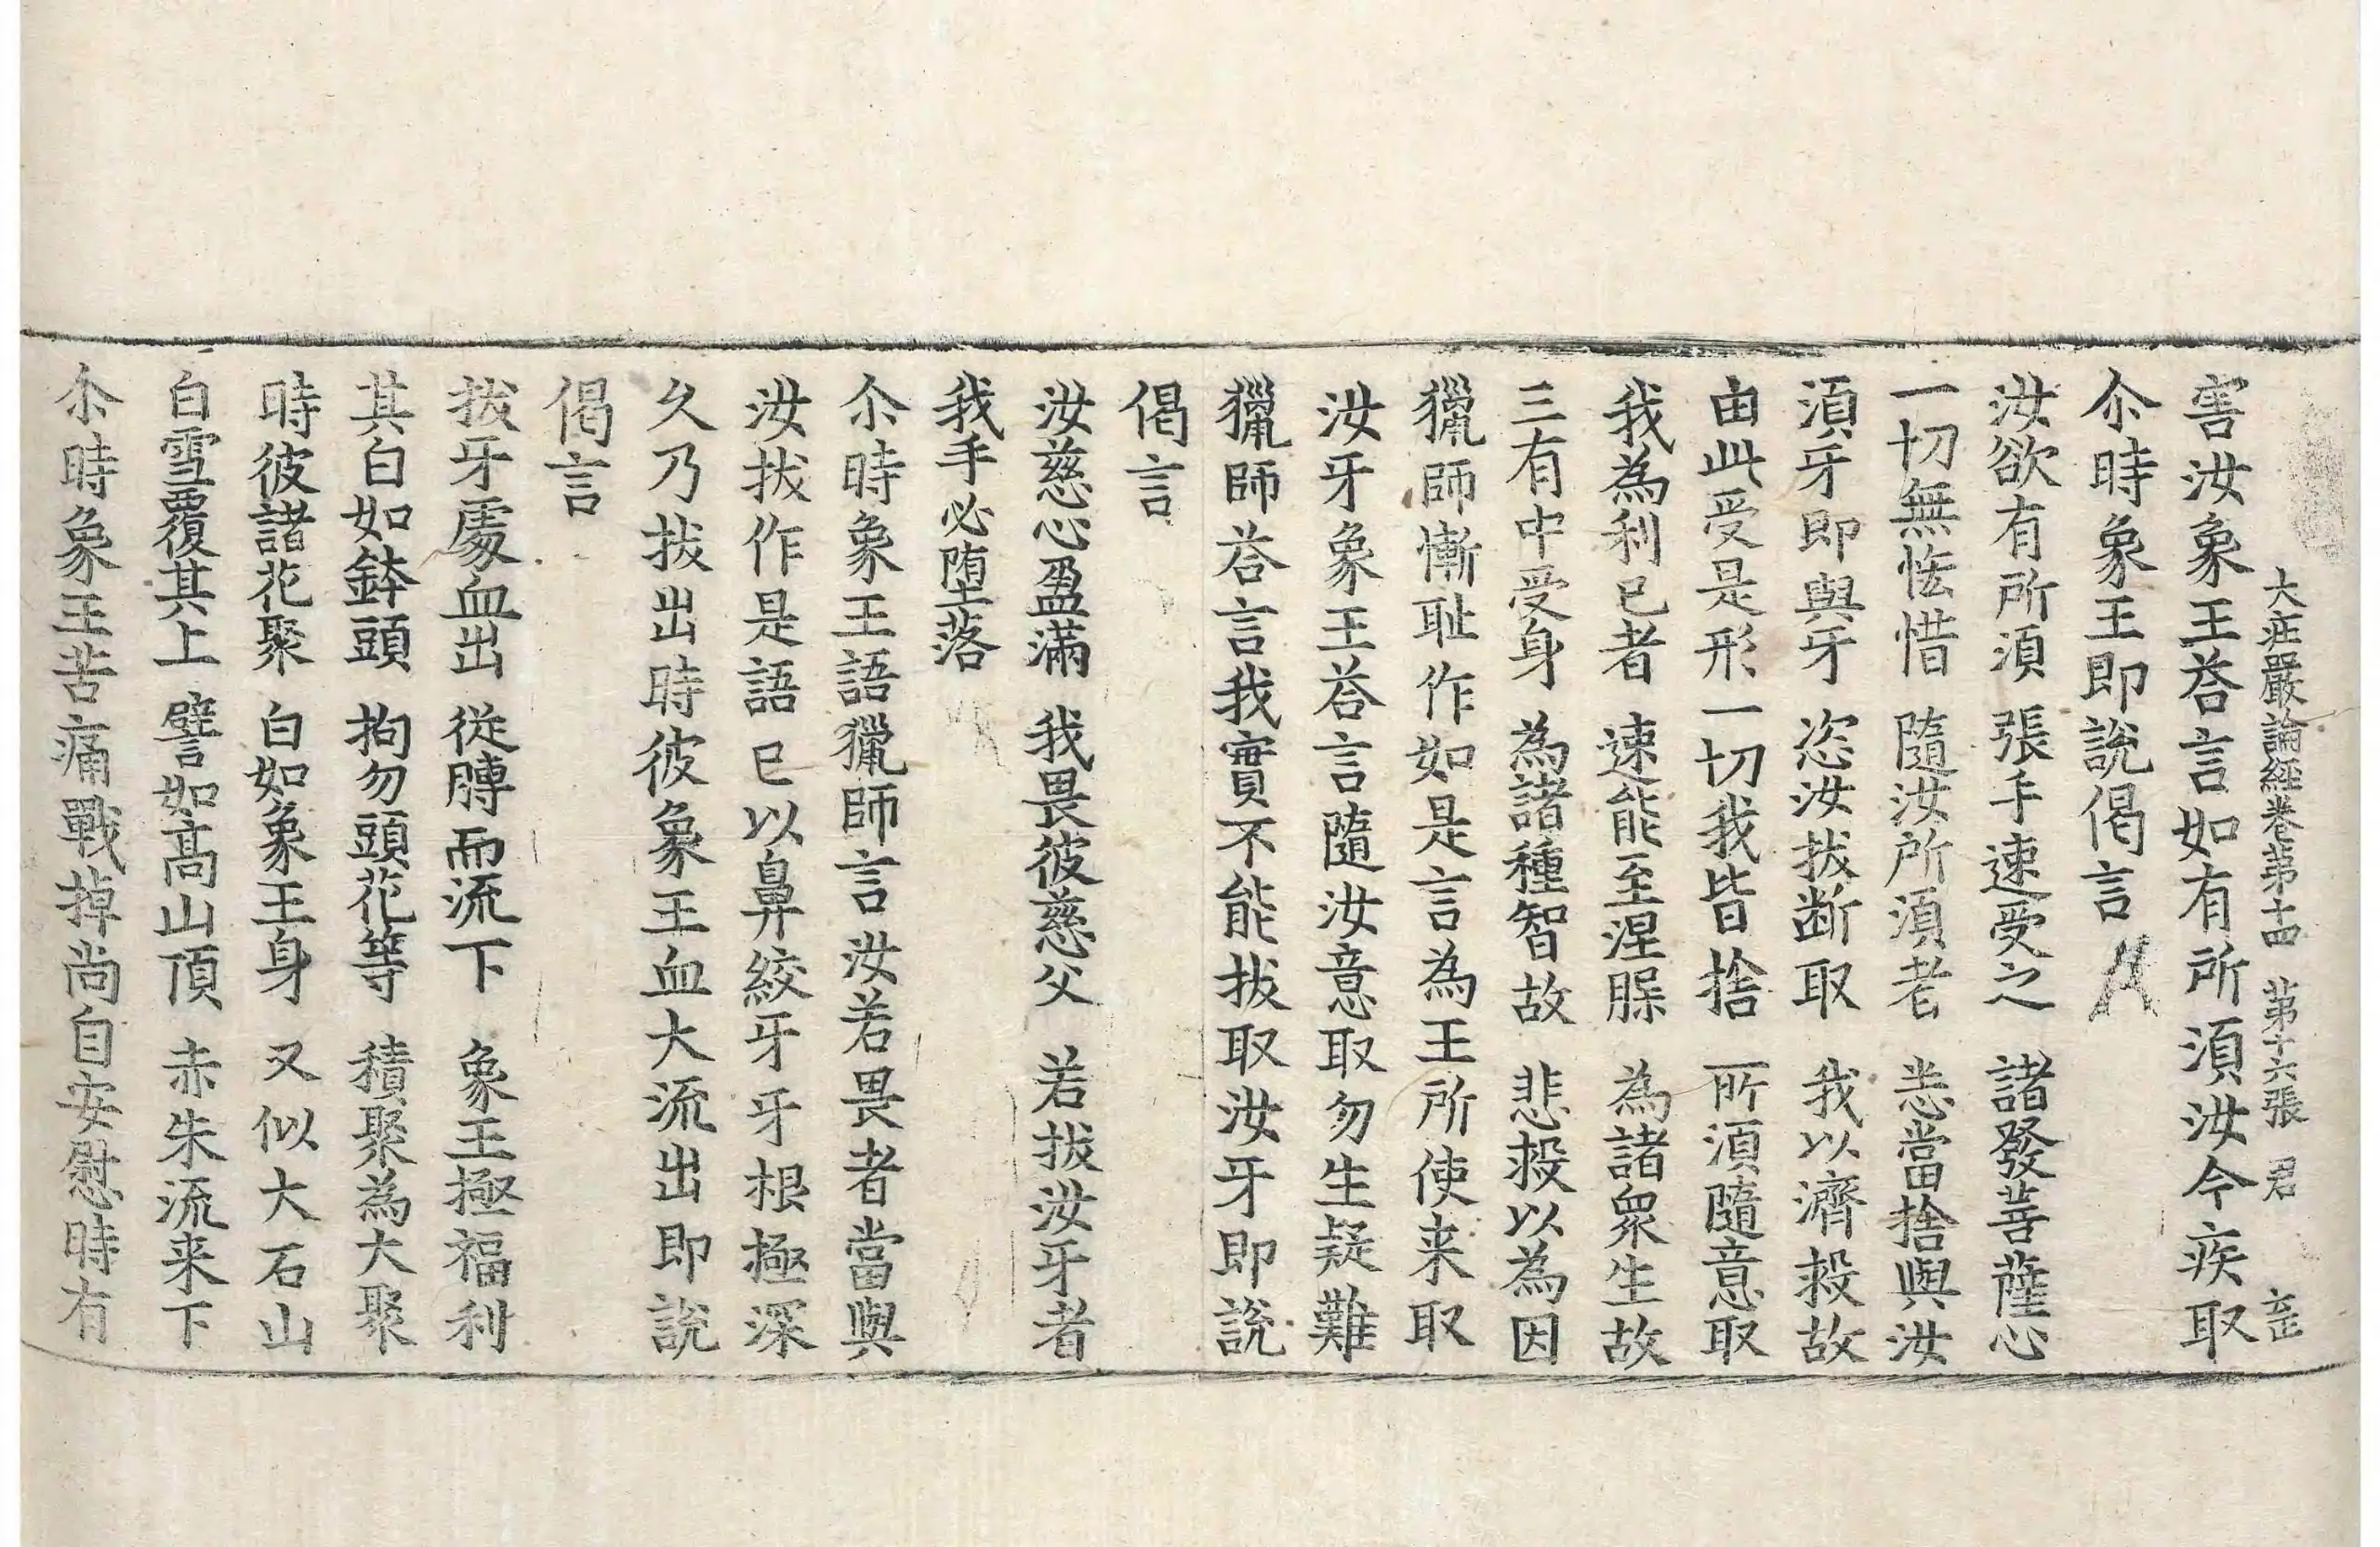 大莊嚴論經卷第十四 第十六張 君
害汝象王荅言如有所湏汝今疾取
尒時象王即說偈言
汝欲有所湏 張手速受之 諸發菩薩心
一切無恡惜 隨汝所湏者 恙當捨與汝
湏牙即與牙 恣汝拔断取 我以濟救故
由此受是形 一切我皆捨 所湏隨意取
我為利已者 速能至涅縣 為諸衆生故
三有中受身 為諸種智故 悲救以為因
獵師慚耻作如是言為王所使来取
汝牙象王荅言隨汝意取勿生疑難
獵師荅言我實不能拔取汝牙即說
偈言
汝慈心盈滿 我畏彼慈父 若拔汝牙者
我手必墮落
尒時象王語獵師言汝若畏者當與
汝拔作是語已以鼻絞牙牙根極深
久乃拔出時彼象王血大流出即說
偈言
拔牙處血出 從膊而流下 象王極福利
其白如鉢頭 拘勿頭花等 積聚為大聚
時彼諸花聚 白如象王身 又似大石山
白雪覆其上 譬如髙山頂 赤朱流来下
尒時象王苦痛戰掉尚自安慰時有